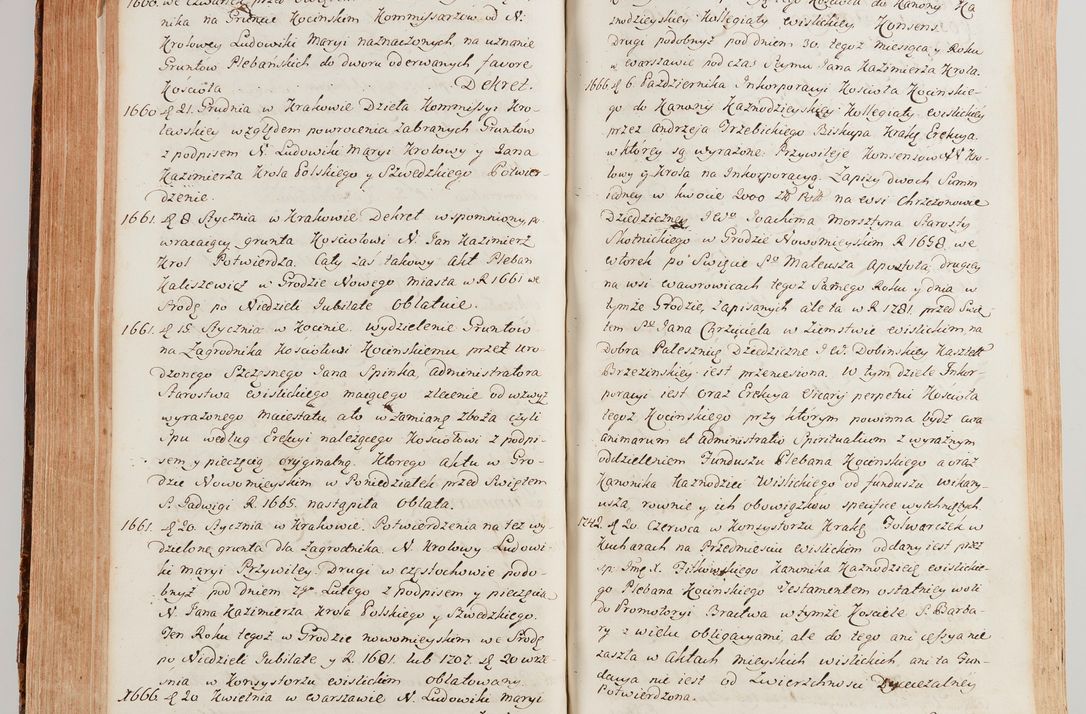 nika na Gruncie Kocinskim Kommissarzow od N.
Krolowey Ludowiki Maryi naznaczonych na uznanie
Gruntow Plebanskich do dworu oderwanych favore
Kościoła Dekret.
1660. d 21. Grudnia w Krakowie Dzieła Kommissyi Kro-
lewskiey względem powrocenia zabranych Gruntow
z podpisem N. Ludowiki Maryi Krolowy y Jana
Kazimierza Krola Polskiego y Szwedzkiego Potwier-
dzenie.
1661. d 8 Stycznia w Krakowie Dekret wspomniony, po-
wracaiący grunta Kościołowi N. Jan Kazimierz
Krol Potwierdza. Cały zaś takowy Akt Pleban
Kaleszewicz w Grodzie Nowego miasta w R 1661 we
Srodę po Niedzieli Jubilate oblatuie.
1661. d 18 Stycznia w Kocinie. wydzielenie Gruntow
na Zagrodnika Kościołowi Kocinskiemu przez uro-
dzonego Szczęsnego Jana Spinka, administratora
Starostwa wislickiego maiącego zlecenie od wyżey
wyrażonego Maiestatu a to w zamianę zboża czyli
Spu według Erekcyi należącego Kościołowi z podpi-
sem y pieczęcią oryginalną. Ktorego aktu w Gro-
dzie Nowomieyskim w Poniedziałek przed Swiętem
S. Jadwigi R. 1665. nastąpiła oblata.
1661. d 20. Stycznia w Krakowie. Potwierdzenia na też wy-
dzielone grunta dla zagrodnika N. Krolowy Ludowi-
ki Maryi Przywiley. Drugi w częstochowie podo-
bnyż pod Dniem 29º Lutego z podpisem y pieczęcią
N. Jana Kazimierza Krola Polskiego y Szwedzkiego.
Ten Roku tegoż w Grodzie nowomieyskim we Srodę
po Niedzieli Jubilate, y R. 1681. lub 1707. d 20 wrze-
snia w Konsystorzu wislickim oblatowany.
1666. d 20 Kwietnia w Warszawie N. Ludowiki Maryi
znodzieyskiey Kollegiaty wislickiey Konsens.
Drugi podobnyż pod dniem 30. tegoż miesiąca y Roku
w Warszawie pod czas Seymu Jana Kazimierza Krola.
1666. d 6. Pazdziernika Inkorporacyi Kościoła Kocinskie-
go do Kanonij Kaznodzieyskiey Kollegiaty wislickiey
przez Andrzeja Trzebickiego Biskupa Krakg Erekcya.
w ktorey są wyrażone: Przywileje Konsensow NN Kro-
lowy y Krola na Inkorporacyą. Zapisy dwoch Summ
iedney w kwocie 2000 Zł Pols na wsi Chrzczonowie
Dziedziczney JWº Joachima Morsztyna Starosty
Skotnickiego w Grodzie Nowomieyskim R 1658. we
wtorek po Swięcie Sº Mateusza Apostoła, drugiey
na wsi wawrowicach tegoż Samego Roku y dnia w
tymże Grodzie, zapisanych ale ta w R 1781. przed Swię-
tem Sº Jana Chrzciciela w Ziemstwie wislickim na
Dobra Palesznicę Dziedziczne JW. Dobinskiey Kasztel
Brzezinskiey iest przeniesiona. W tym dziele Inkor-
poracyi iest oraz Erekcya Vicarij perpetui Kościoła
tegoż Kocinskiego przy ktorym powinna bydz cura
animarum et administratio Spiritualium z wyraznym
oddzieleniem Funduszu Plebana Kocinskiego a oraz
Kanonika Kaznodziei Wislickiego od funduszu wikary-
usza rownie y ich obowiązkow specifice wytchniętych.
1742. d 20 Czerwca w Konsystorzu Krakg. Folwarczek w
Kucharach na Przedmiesciu wislickim oddany iest przez
sp: Jmę X. Kanonika Kaznodzieię wislickie-
go Plebana Kocinskiego Testamentem ostatniey woli
do Promotoryi Bractwa w tymże Kościele S. Barba-
ry z wielu obligacyami, ale do tego ani cessya nie
zaszła w Aktach mieyskich wislickich, ani ta Fun-
dacya nie iest od Zwierzchnosci Dyecezalney
Potwierdzona.